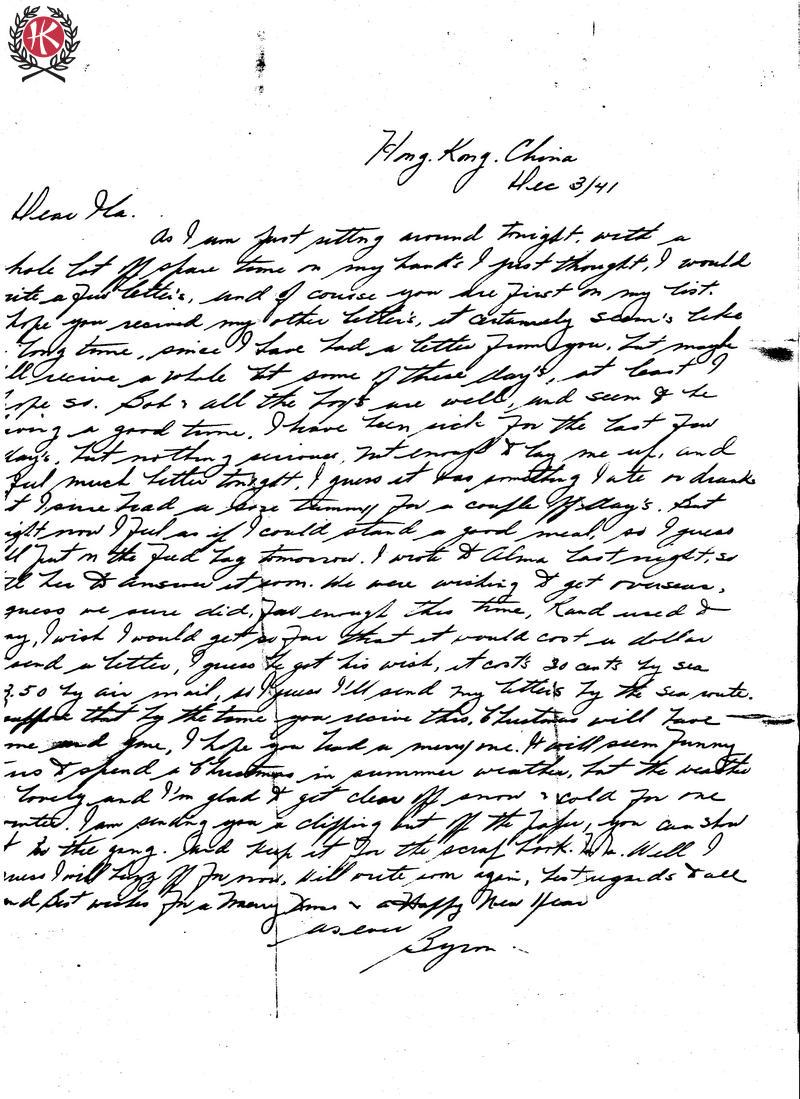 HK
Hong. Kong. China
Dec 3/41
Dear Ma.
As I am just sitting around tonight, with a
hole lot off spare time on my hands I just thought, I would
rite a few letter's, and of course you are first on my list.
hope you recived my other letter's, it certainely seem's like
long time, since I have had a letter from you, but maybe
'll recive a whole lot some of these day's, at least I
ope so. Bob & all the boy's are well, and seem to be
aving a good time. I have been sick for the last few
day's, but nothing serious, but enough to lay me up, and
feel much better tonight, I guess it was something I ate or drank
t I sure had a sore tummy for a couple off day's. But
ight now I feel as if I could stand a good meal, so I guess
ll put on the feed bag tomorrow. I wrote to Alma last night, so
ll her to answer it soon. We were wishing to get overseas,
guess we sure did, far enough this time, Rand used to
ay, I wish I would get so far that it would cost a dollar
send a letter, I guess he got his wish, it cost's 30 cents by sea
3.50 by air mail, so I guess I'll send my letter's by the sea route.
uppose that by the time you recive this, Christmas will have
me and gone, I hope you had a merry one. It will seem funny
us to spend a Christmas in summer weather, but the weather
lovely and I'm glad to get clear off snow & cold for one
inter. I am sending you a clipping out off the paper, you can show
t to the gang. And keep it for the scrap book. Well I
uess I will buzz off for now, will write soon again, best regards to all
nd, Best wishes for a Merry Xmas & a Happy New Year
as ever
Byron